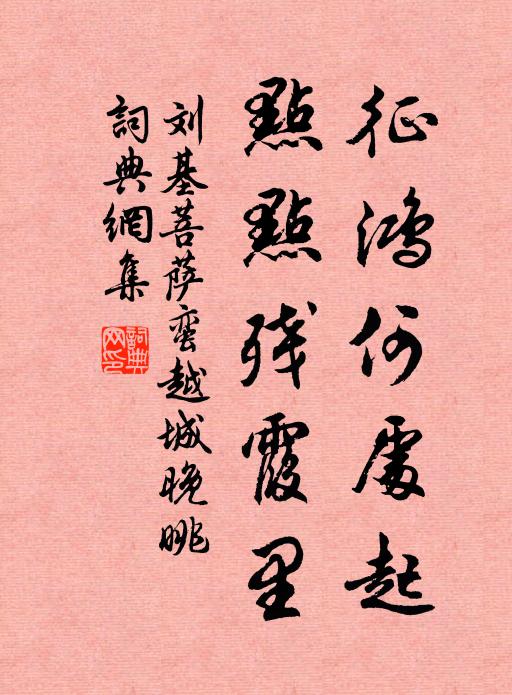 征鴻何處起
點點残霞里
刘基菩萨蛮越城晚眺
詞典網集
詞典網印